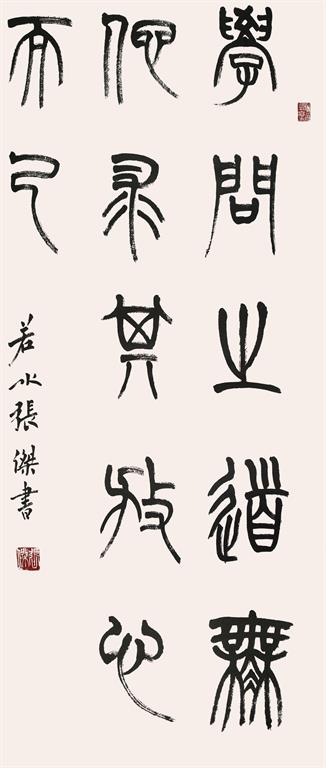 學問之道無
他求其放心
而已
若水張傑書